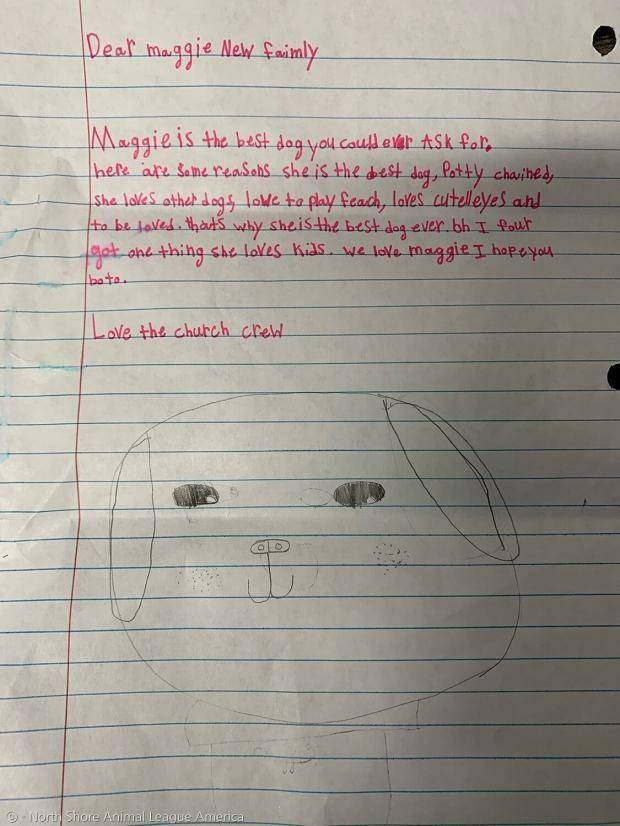 Dear maggie New faimly
Maggie is the best dog you could ever ASK for.
here are some reasons she is the best dog, Potty chained,
she loves other dogs, love to play feach, loves cutelleyes and
to be loved. thats why she is the best dog ever. oh I four
got one thing she loves kids. we love maggie I hope you
do to.
Love the church crew
© - North Shore Animal League America